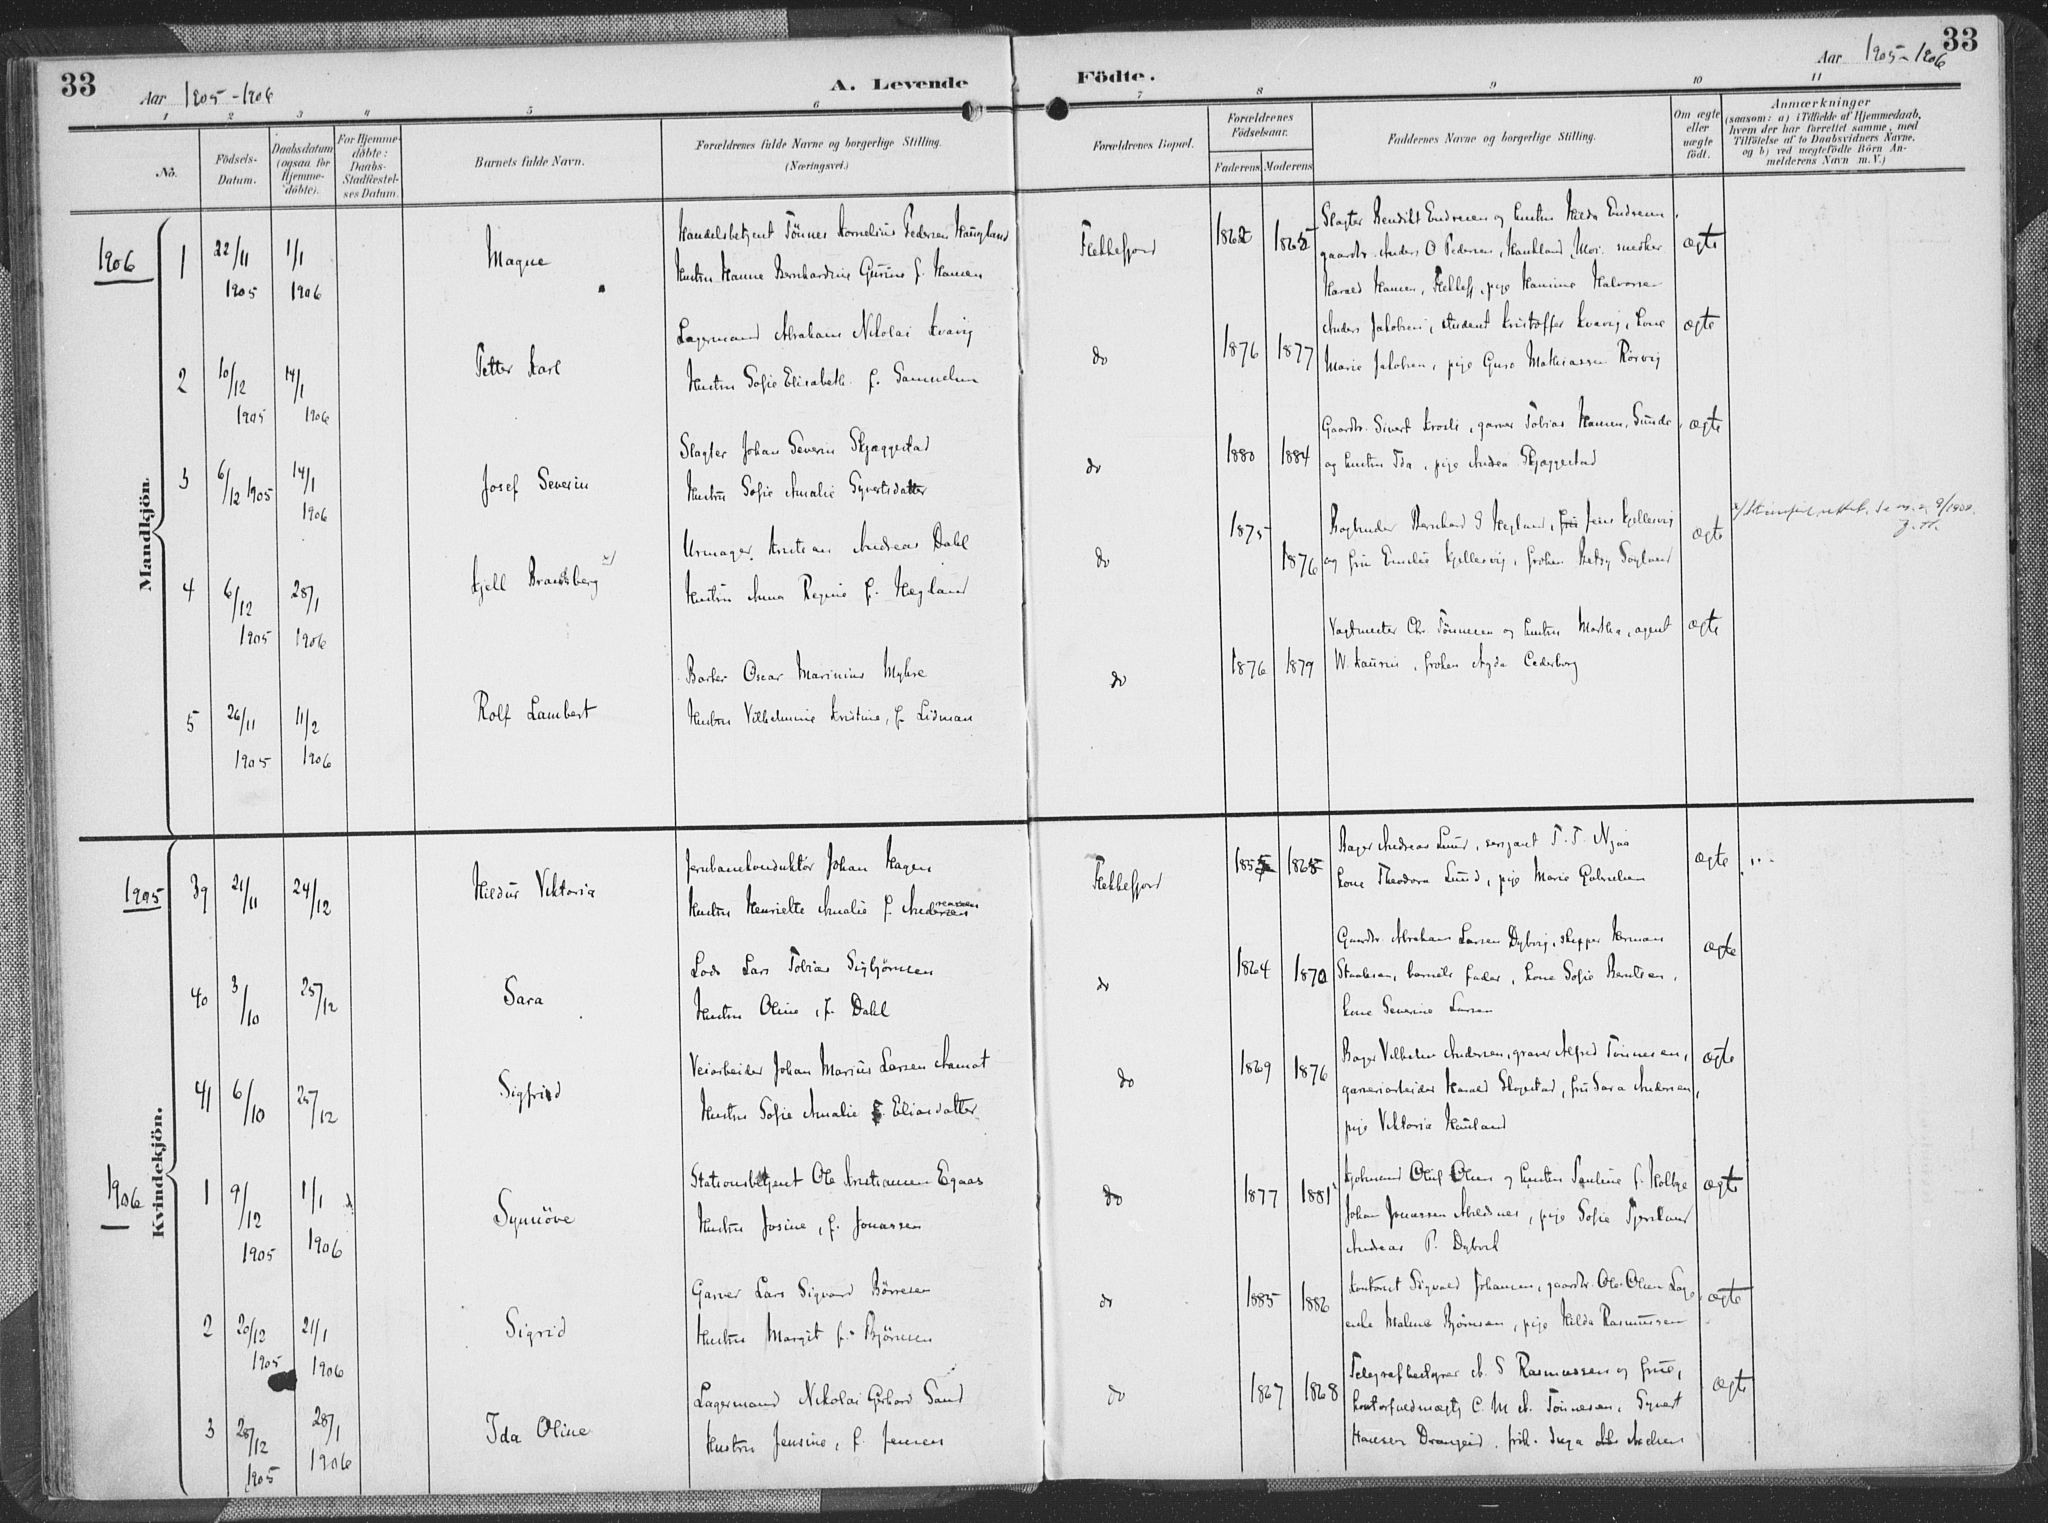 33
Aar 1905-1906
A. Levende
Födte.
Aar 1905-1906
33
1 2 3 4 5 6 7 8 9 10 11
No.
Födsels-Datum.
Daabsdatum (ogsaa for Hjemme-döbte).
For Hjemme-döbte: Daabs-Stadfæstel-ses Datum.
Barnets fulde Navn.
Forældrenes fulde Navne og borgerlige Stilling.
(Næringsvei.)
Forældrenes Bopæl.
Forældrenes Födselsaar.
Faderens Moderens
Faddernes Navne og borgerlige Stilling.
Om ægte eller uægte födt.
Anmærkninger
(saasom: a) i Tilfælde af Hjemmedaab, hvem der har forrettet samme, med Tilföielse af to Daabsvidners Navne, og b) ved uægtefödte Börn Anmelderens Navn m. V.)
Mandkjön.
1906
1 22/11 1905 1/1 1906 Magne
Handelsbetjent Tönnes Kornelius Pedersen Haugland
Hustru Hanne Bernhardine Gurine f. Hansen
Flekkefjord 1862 1865
Slagter Bendikt Endresen og hustru Hilda Endresen
gaardbr. Anders O Pedersen, Haukland, Mor. snedker
Harald Hansen, Flekkefj, pige Hansine Halvorsen
ægte
2 10/12 1905 14/1 1906 Petter Karl
Lagermand Abraham Nikolai Kvavig
Hustru Sofie Elisabeth f. Samuelsen
do 1876 1877
Anders Jakobsen, student Kristoffer Kvavig, Kone
Marie Jakobsen, pige Guro Mathiassen Rörvig
ægte
3 6/12 1905 14/1 1906 Josef Severin
Slagter Johan Severin Skjæggestad
Hustru Sofie Amalie Syvertsdatter
do 1880 1884
Gaardbr. Sivert Krosli, garver Tobias Hansen, Sunde
og hustru Ida, pige Andrea Skjæggestad
ægte
4 6/12 1905 28/1 1906 Kjell Brandsberg x/
Urmager Kristian Andreas Dahl
Hustru Anna Regine f. Hegland
do 1875 1876
Bogbinder Bernhard S Hegland, Jens Kjellesvig
og fru Emilie Kjellesvig, fröken Betsy
ægte
5 26/11 1905 11/2 1906 Rolf Lambert
Barber Oscar Marinius Myhre
Hustru Vilhelmine Kristine, f. Lidman
do 1876 1879
Vagtmester Chr. Tönnesen og hustru Martha, agent
W. Laurin, fröken Agda Cederborg
ægte
Kvindekjön.
1905
39 21/11 24/12 Hildur Viktoria
Jernbanekonduktör Johan Hagen
Hustru Henriette Amalie f. Andreassen
Flekkefjord 1855 1865
Bager Andreas Lund, sersjant T. T. Njaa
Kone Theodora Lund, pige Marie Gabrielsen
ægte
40 3/10 25/12 Sara
Lods Lars Tobias Sigbjörnsen
Hustru Oline, f. Dahl
do 1864 1870
Gaardbr. Abraham Larsen Dybvig, skipper Herman
Staalesen, barnets fader, Kone Sofie Berntsen,
Kone Severine Larsen
ægte
41 6/10 25/12 Sigfrid
Veiarbeider Johan Marius Larsen Aamot
Hustru Sofie Amalie Eliasdatter
do 1869 1876
Bager Vilhelm Andersen, graver Alfred Tönnesen,
garveriarbeider Harald Skogestad, fru Sara Andersen,
pige Viktoria Hauland
ægte
1906
1 9/12 1905 1/1 1906 Synnöve
Stationsbetjent Ole Kristiansen Egaas
Hustru Josine, f. Jonassen
do 1877 1881
Kjöbmand Oluf Olsen og hustru Pauline f. Holbye
Johan Jonassen Abelsnes, pige Sofie
Andreas P. Dybvik
ægte
2 20/12 1905 21/1 1906 Sigrid
Garver Lars Sigvard Börresen
Hustru Margit f. Björnsen
do 1885 1886
Kontorist Sigvald Johansen, gaardbr. Ole Olsen
enke Malene Björnsen, pige Hilda Rasmussen
ægte
3 28/12 1905 28/1 1906 Ida Oline
Lagermand Nikolai Gerhard Sand
Hustru Jensine, f. Jensen
do 1867 1868
Telegrafbestyrer A. S Rasmussen og frue,
kontorfuldmægtig C. M. A. Tönnesen, Syvert
Hansen Drangeid, frk. Inga Axelsen
ægte